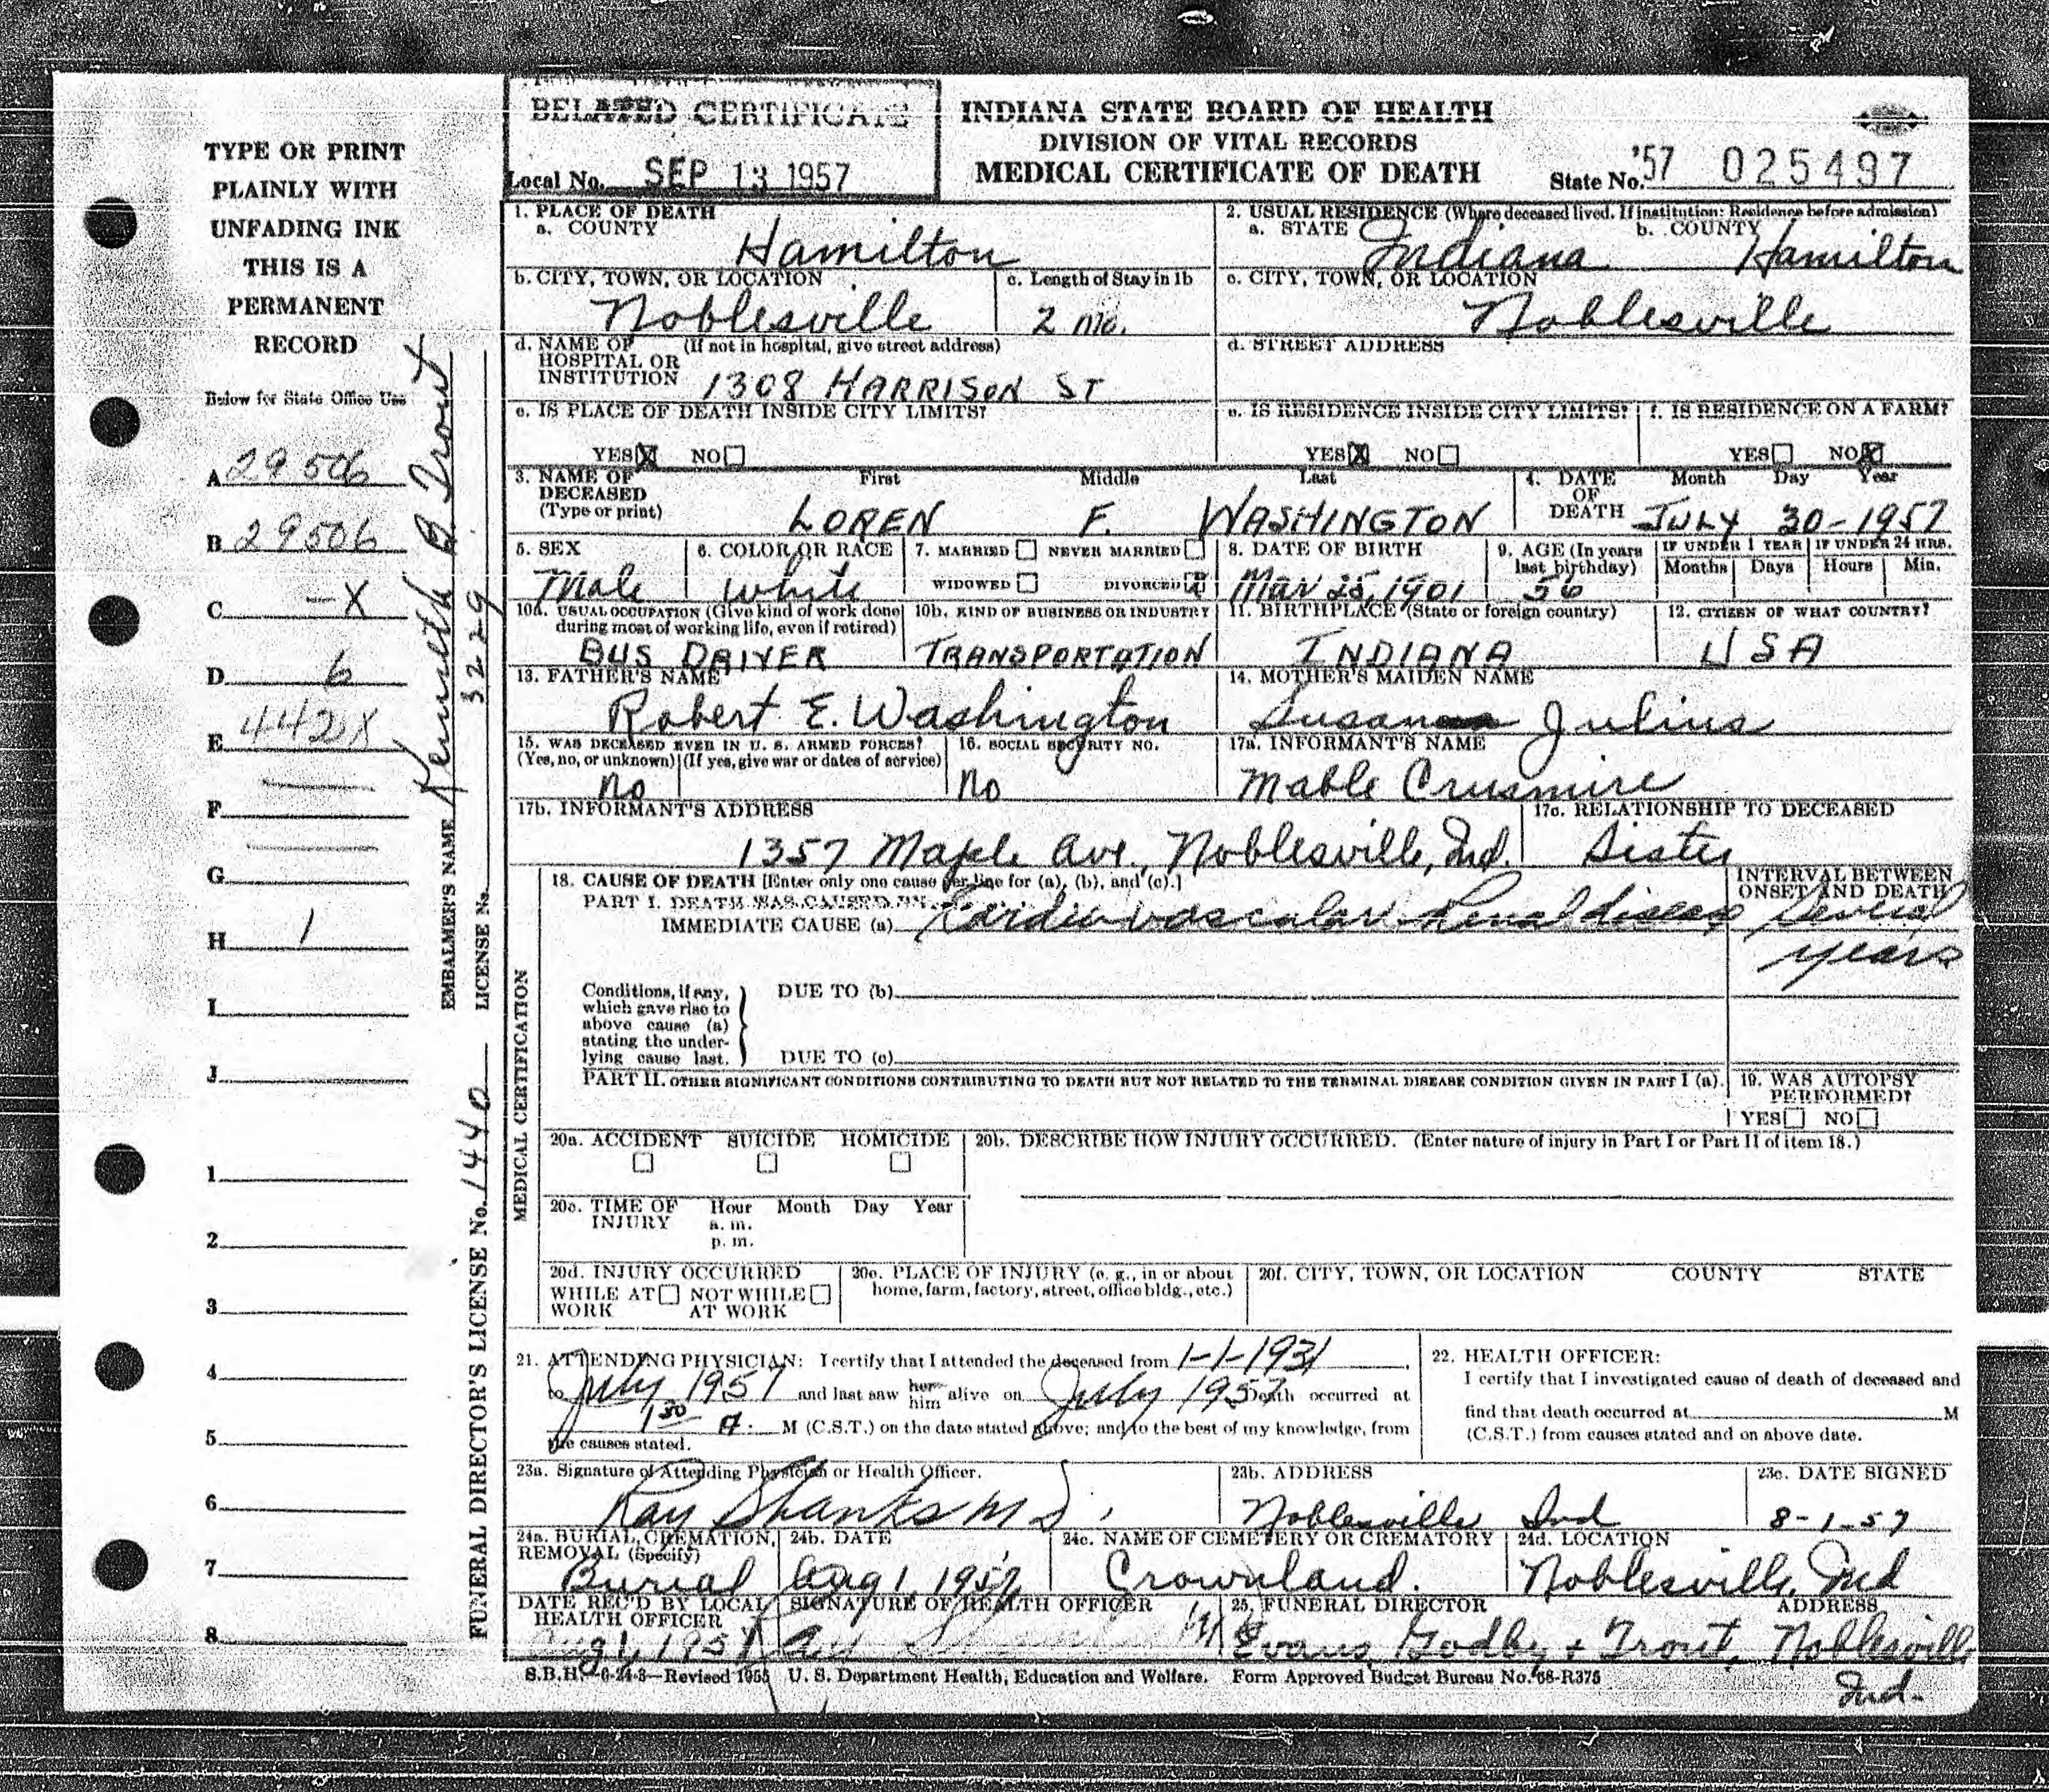 BELATED CERTIFICATE
Local No. SEP 13 1957
INDIANA STATE BOARD OF HEALTH
DIVISION OF VITAL RECORDS
MEDICAL CERTIFICATE OF DEATH
State No. '57 025497
TYPE OR PRINT
PLAINLY WITH
UNFADING INK
THIS IS A
PERMANENT
RECORD
Below for State Office Use
A 29506
B 29506
C -X
D 6
E 442X
F
G
H 1
I
J
1
2
3
4
5
6
7
8
EMBALMER'S NAME Kenneth B. Trout
LICENSE No. 3229
FUNERAL DIRECTOR'S LICENSE No. 1440
1. PLACE OF DEATH
a. COUNTY Hamilton
2. USUAL RESIDENCE (Where deceased lived. If institution: Residence before admission)
a. STATE Indiana b. COUNTY Hamilton
b. CITY, TOWN, OR LOCATION Noblesville
c. Length of Stay in 1b 2 mo.
c. CITY, TOWN, OR LOCATION Noblesville
d. NAME OF HOSPITAL OR INSTITUTION (If not in hospital, give street address) 1308 HARRISON ST
d. STREET ADDRESS
e. IS PLACE OF DEATH INSIDE CITY LIMITS?
YES X NO
e. IS RESIDENCE INSIDE CITY LIMITS?
YES X NO
f. IS RESIDENCE ON A FARM?
YES NO X
3. NAME OF DECEASED (Type or print) First Middle Last
LOREN F. WASHINGTON
4. DATE OF DEATH Month Day Year
JULY 30-1957
5. SEX Male
6. COLOR OR RACE White
7. MARRIED NEVER MARRIED
WIDOWED DIVORCED X
8. DATE OF BIRTH Mar 25, 1901
9. AGE (In years last birthday) 56
IF UNDER 1 YEAR Months Days
IF UNDER 24 HRS. Hours Min.
10a. USUAL OCCUPATION (Give kind of work done during most of working life, even if retired) BUS DRIVER
10b. KIND OF BUSINESS OR INDUSTRY TRANSPORTATION
11. BIRTHPLACE (State or foreign country) INDIANA
12. CITIZEN OF WHAT COUNTRY? USA
13. FATHER'S NAME Robert E. Washington
14. MOTHER'S MAIDEN NAME Susan Julius
15. WAS DECEASED EVER IN U. S. ARMED FORCES?
(Yes, no, or unknown) (If yes, give war or dates of service) no
16. SOCIAL SECURITY NO. no
17a. INFORMANT'S NAME Mable Crusmire
17b. INFORMANT'S ADDRESS 1357 Maple Ave., Noblesville, Ind.
17c. RELATIONSHIP TO DECEASED Sister
MEDICAL CERTIFICATION
18. CAUSE OF DEATH [Enter only one cause per line for (a), (b), and (c).]
PART I. DEATH WAS CAUSED BY:
IMMEDIATE CAUSE (a) Cardio vascular Renal disease
INTERVAL BETWEEN ONSET AND DEATH Several years
Conditions, if any, which gave rise to above cause (a) stating the underlying cause last.
DUE TO (b)
DUE TO (c)
PART II. OTHER SIGNIFICANT CONDITIONS CONTRIBUTING TO DEATH BUT NOT RELATED TO THE TERMINAL DISEASE CONDITION GIVEN IN PART I (a).
19. WAS AUTOPSY PERFORMED?
YES NO
20a. ACCIDENT SUICIDE HOMICIDE
20b. DESCRIBE HOW INJURY OCCURRED. (Enter nature of injury in Part I or Part II of item 18.)
20c. TIME OF INJURY Hour Month Day Year
a. m.
p. m.
20d. INJURY OCCURRED
WHILE AT WORK NOT WHILE AT WORK
20e. PLACE OF INJURY (e. g., in or about home, farm, factory, street, office bldg., etc.)
20f. CITY, TOWN, OR LOCATION COUNTY STATE
21. ATTENDING PHYSICIAN: I certify that I attended the deceased from 1-1-1931
to July 1957 and last saw her him alive on July 1957 Death occurred at
1 30 A. M (C.S.T.) on the date stated above; and to the best of my knowledge, from
the causes stated.
22. HEALTH OFFICER:
I certify that I investigated cause of death of deceased and
find that death occurred at M
(C.S.T.) from causes stated and on above date.
23a. Signature of Attending Physician or Health Officer. Ray Shanks MD.
23b. ADDRESS Noblesville Ind
23c. DATE SIGNED 8-1-57
24a. BURIAL, CREMATION, REMOVAL (Specify) Burial
24b. DATE Aug 1, 1957
24c. NAME OF CEMETERY OR CREMATORY Crownland.
24d. LOCATION Noblesville, Ind
DATE REC'D BY LOCAL HEALTH OFFICER Aug 1, 1957
SIGNATURE OF HEALTH OFFICER
25. FUNERAL DIRECTOR ADDRESS
Evans, Godby + Trout, Noblesville
Ind.
S.B.H. 6-24-3—Revised 1955 U. S. Department Health, Education and Welfare. Form Approved Budget Bureau No. 68-R375